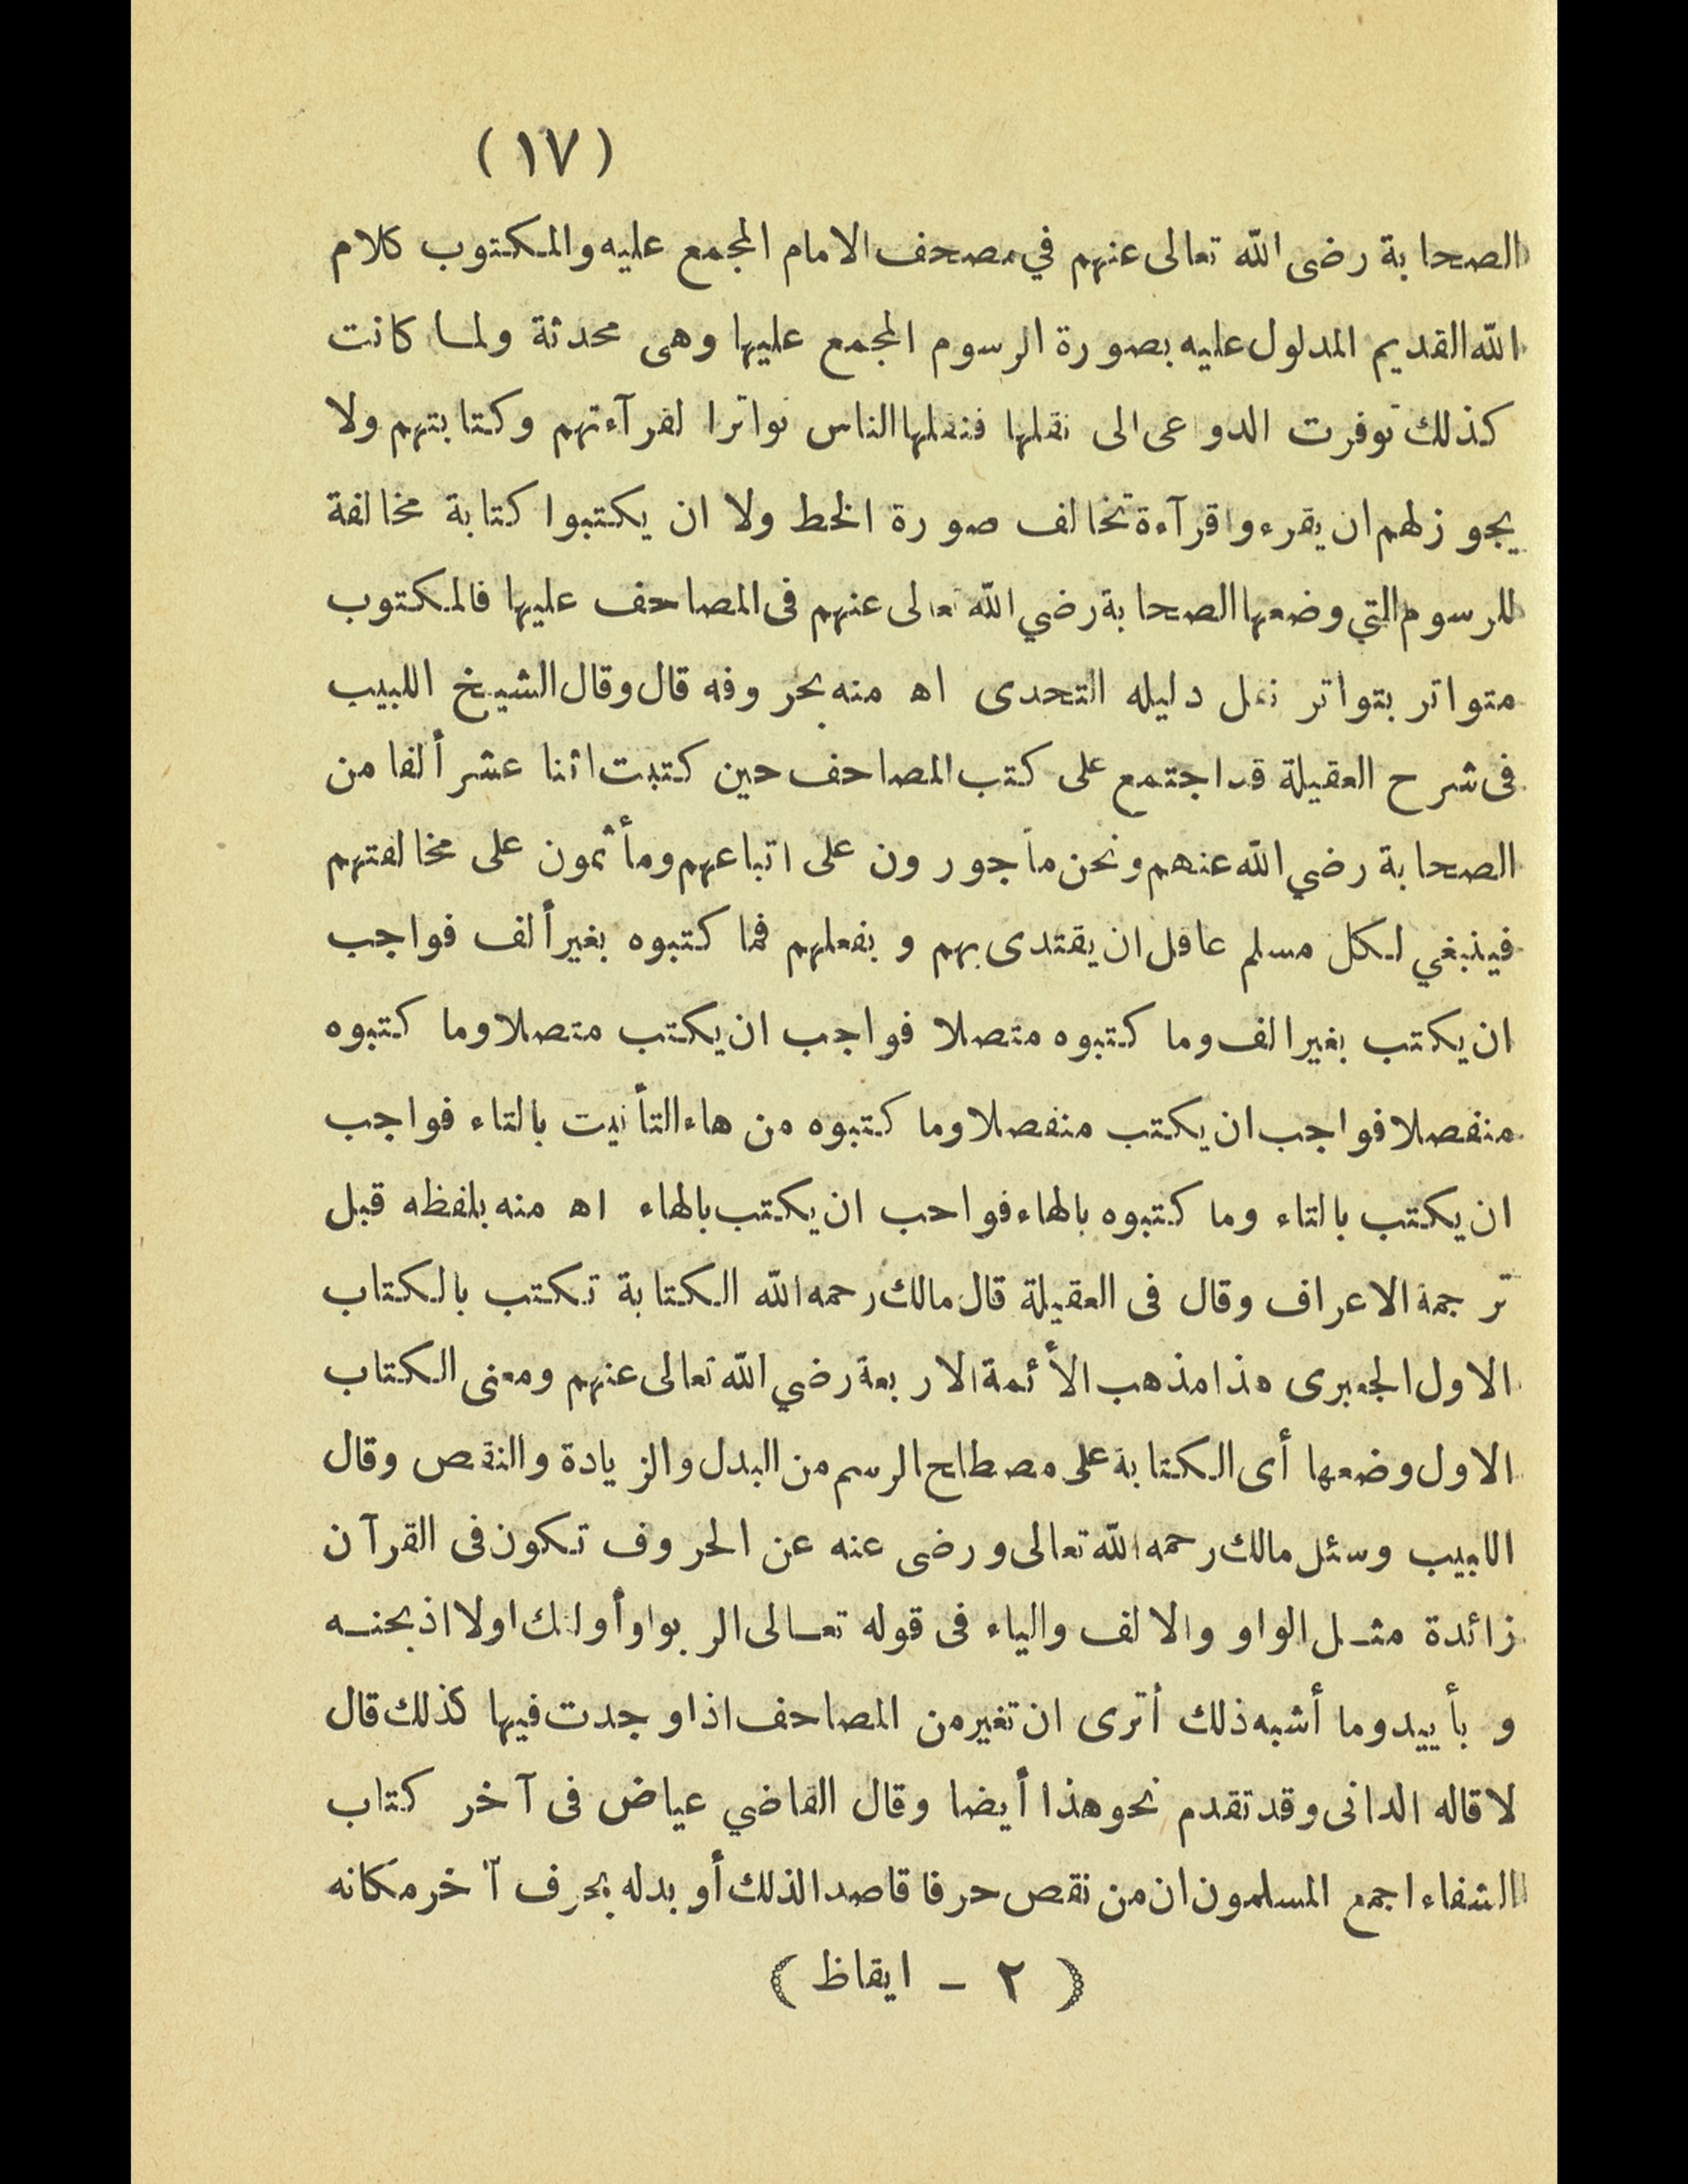 (١٧)
الصحابة رضى الله تعالى عنهم في مصحف الامام المجمع عليه والمكتوب كلام
الله القديم المدلول عليه بصورة الرسوم المجمع عليها وهى محدثة ولما كانت
كذلك توفرت الدواعى الى نقلها فنقلها الناس تواترا لقرآءتهم وكتابتهم ولا
يجوز لهم ان يقرءوا قرآءة تخالف صورة الخط ولا ان يكتبوا كتابة مخالفة
للرسوم التي وضعها الصحابة رضي الله تعالى عنهم فى المصاحف عليها فالمكتوب
متواتر بتواتر نقل دليله التحدى اه منه بحروفه قال وقال الشيخ اللبيب
فى شرح العقيلة قد اجتمع على كتب المصاحف حين كتبت اثنا عشر ألفا من
الصحابة رضي الله عنهم ونحن مأجورون على اتباعهم ومأثمون على مخالفتهم
فينبغي لكل مسلم عاقل ان يقتدى بهم و بفعلهم فما كتبوه بغير ألف فواجب
ان يكتب بغير الف وما كتبوه متصلا فواجب ان يكتب متصلا وما كتبوه
منفصلا فواجب ان يكتب منفصلا وما كتبوه من هاء التأنيت بالتاء فواجب
ان يكتب بالتاء وما كتبوه بالهاء فواحب ان يكتب بالهاء اه منه بلفظه قبل
ترجمة الاعراف وقال فى العقيلة قال مالك رحمه الله الكتابة تكتب بالكتاب
الاول الجعبرى هذا مذهب الأئمة الاربعة رضي الله تعالى عنهم ومعنى الكتاب
الاول وضعها أى الكتابة على مصطلح الرسم من البدل والزيادة والنقص وقال
اللبيب وسئل مالك رحمه الله تعالى ورضى عنه عن الحروف تكون فى القرآن
زائدة مثل الواو والالف والياء فى قوله تعالى الربوا وأولئك اولا اذبحنه
و بأييد وما أشبه ذلك أترى ان تغير من المصاحف اذا وجدت فيها كذلك قال
لا قاله الدانى وقد تقدم نحو هذا أيضا وقال القاضي عياض فى آخر كتاب
الشفاء اجمع المسلمون ان من نقص حرفا قاصدا لذلك أو بدله بحرف آخر مكانه
( ٢ - ايقاظ )